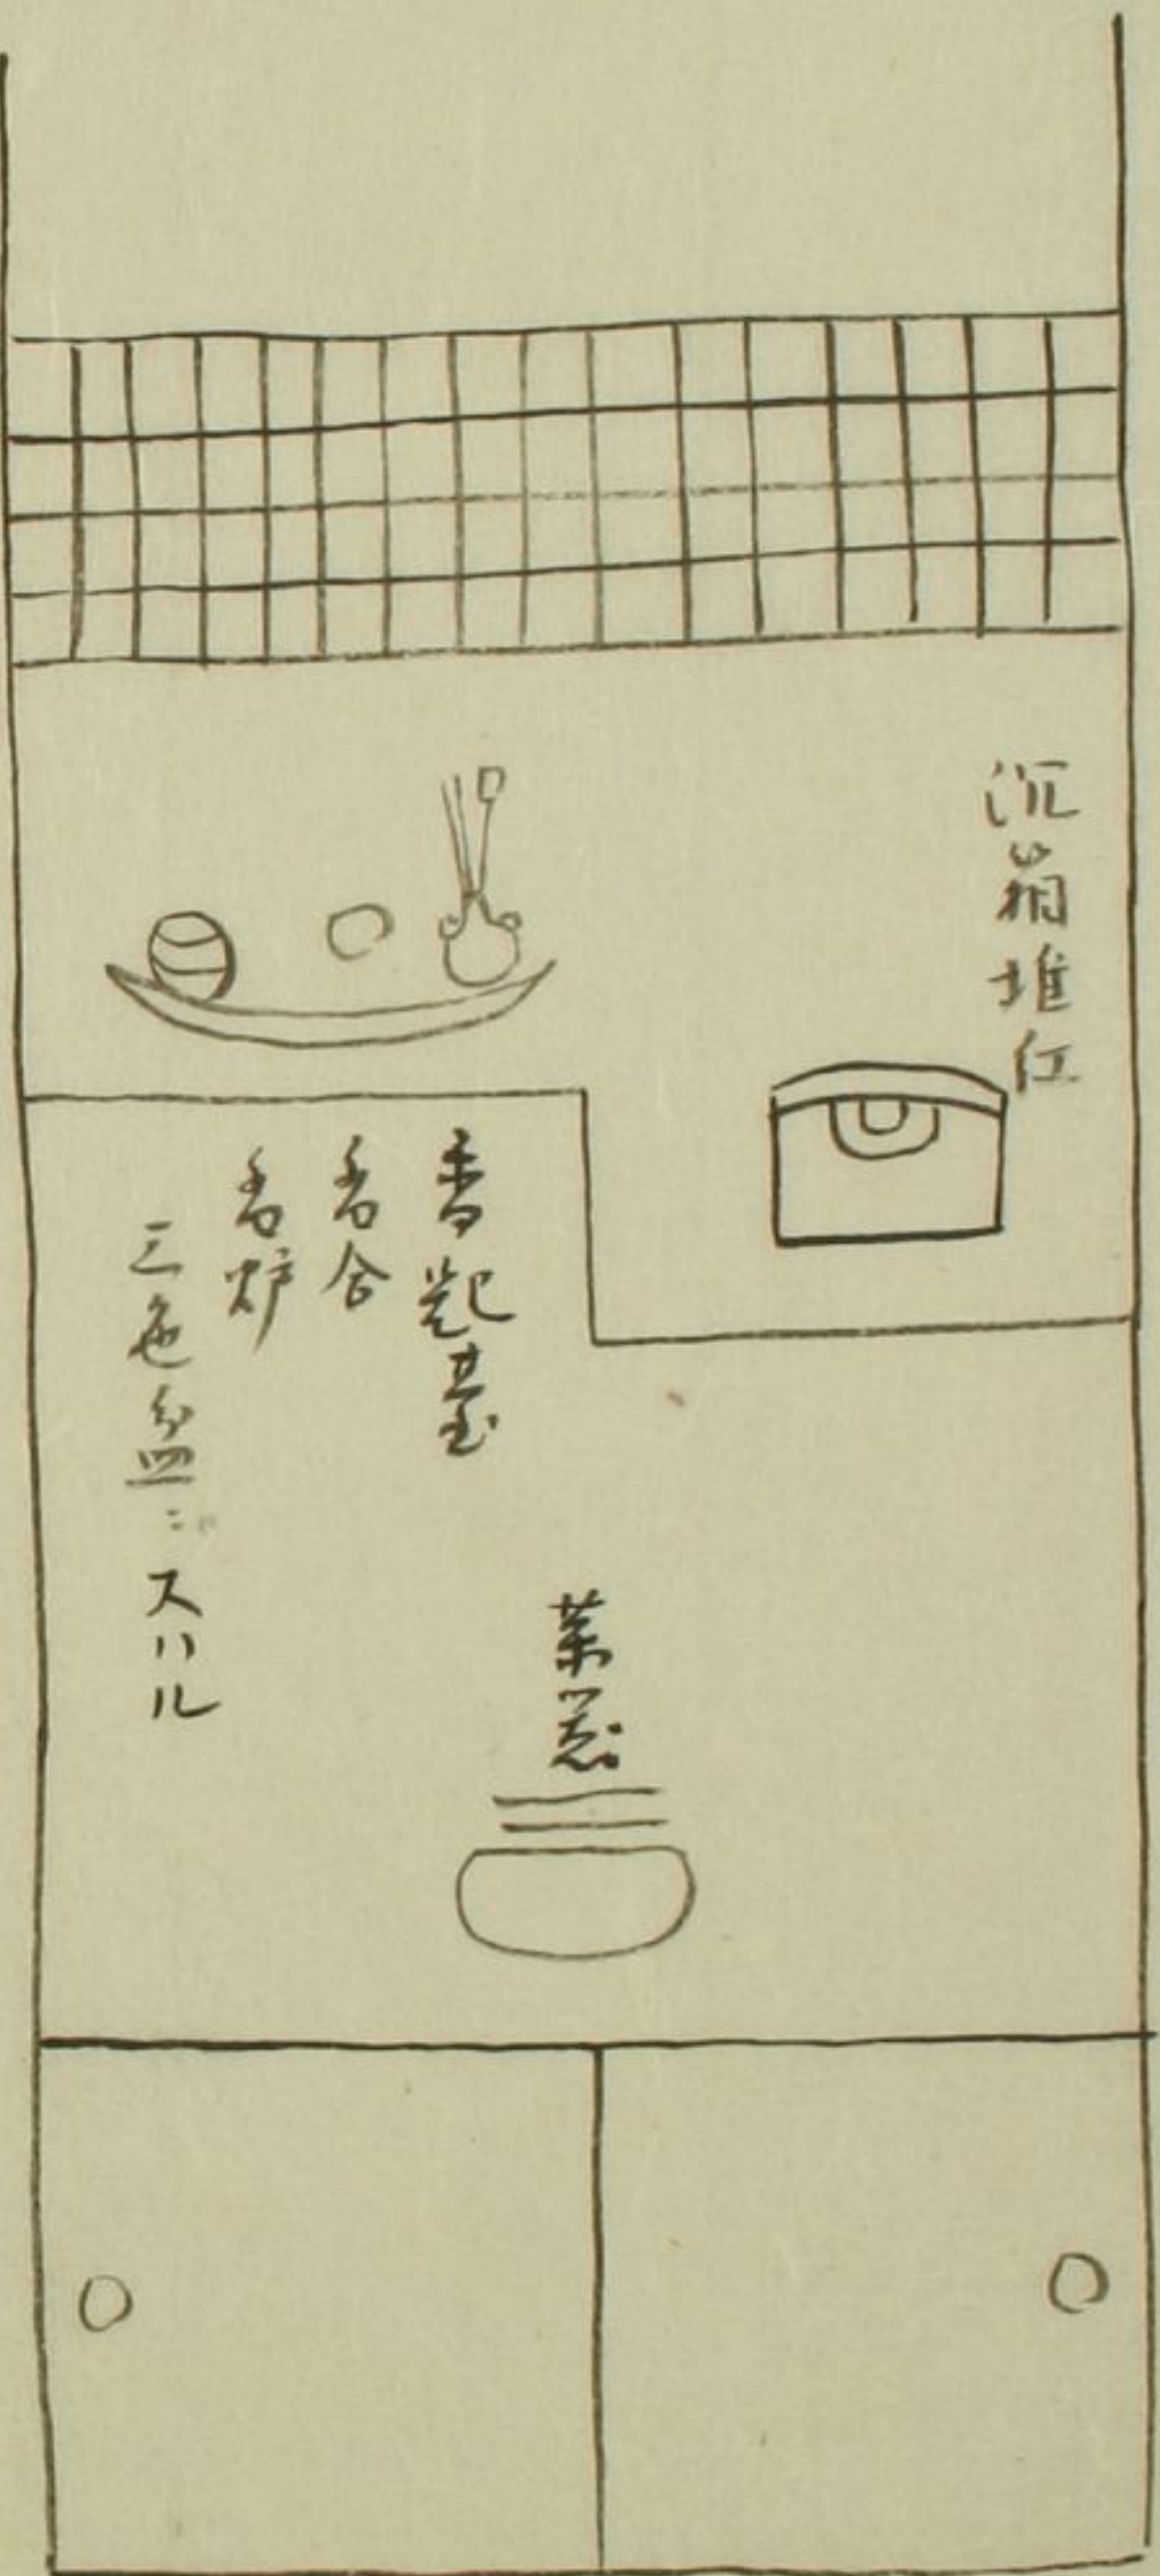 沉箱堆红
香匙臺
香合
香炉
三色盆ニスハル
葉茶